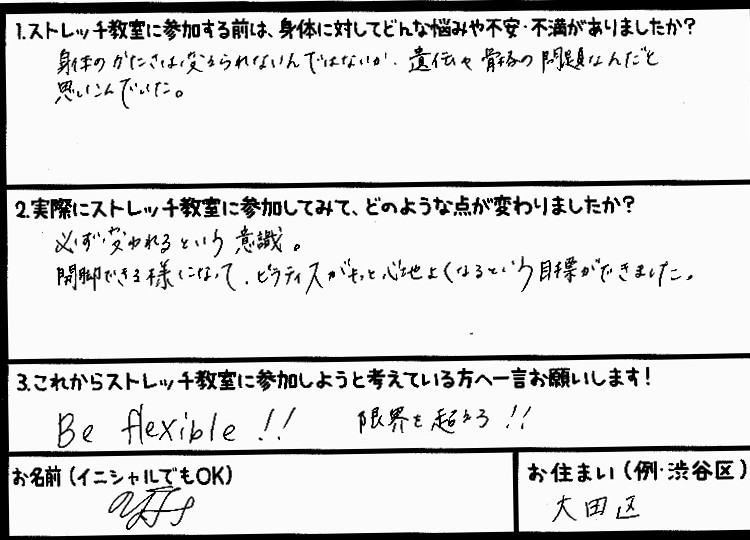 1.ストレッチ教室に参加する前は、身体に対してどんな悩みや不安・不満がありましたか?
身体のかたさは変えられないんではないか、遺伝や骨格の問題なんだと
思いこんでいた。
2.実際にストレッチ教室に参加してみて、どのような点が変わりましたか?
必ず変われるという意識。
開脚できる様になって、ピラティスがもっと心地よくなるという目標ができました。
3.これからストレッチ教室に参加しようと考えている方へ一言お願いします!
Be flexible!! 限界を超えろ!!
お名前(イニシャルでもOK)
お住まい(例・渋谷区)
大田区